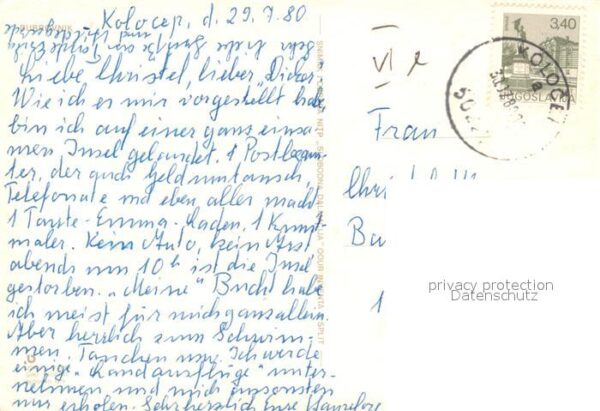 Kolocep, d. 29.7.80
Liebe Christel, lieber "Dicker"!
Wie ich es mir vorgestellt habe,
bin ich auf einer ganz einsa
men Insel gelandet. 1 Postbeam
ter, der auch Geldumtausch,
Telefonate und eben alles macht
1 Tante-Emma-Laden, 1 Kunst-
maler. Kein Auto, kein Arzt
abends um 10h ist die Insel
gestorben. "Meine" Bucht habe
ich meist für mich ganz allein.
Aber herrlich zum Schwim
men, Tauchen usw. Ich werde
einige "Landausflüge" unter-
nehmen und mich ansonsten
nur erholen. Sehr herzlich Eure Hannelore
DUBROVNIK
VI e
Frau
Chri
Ba
1
3,40
JUGOSLAVIJA
KOLOČEP
privacy protection
Datenschutz